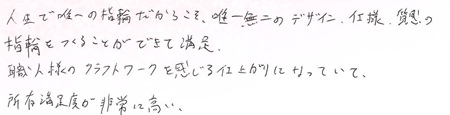 人生で唯一の指輪だからこそ、唯一無二のデザイン、仕様、質感の
指輪をつくることができて満足。
職人様のクラフトワークを感じる仕上がりになっていて、
所有満足度が非常に高い。